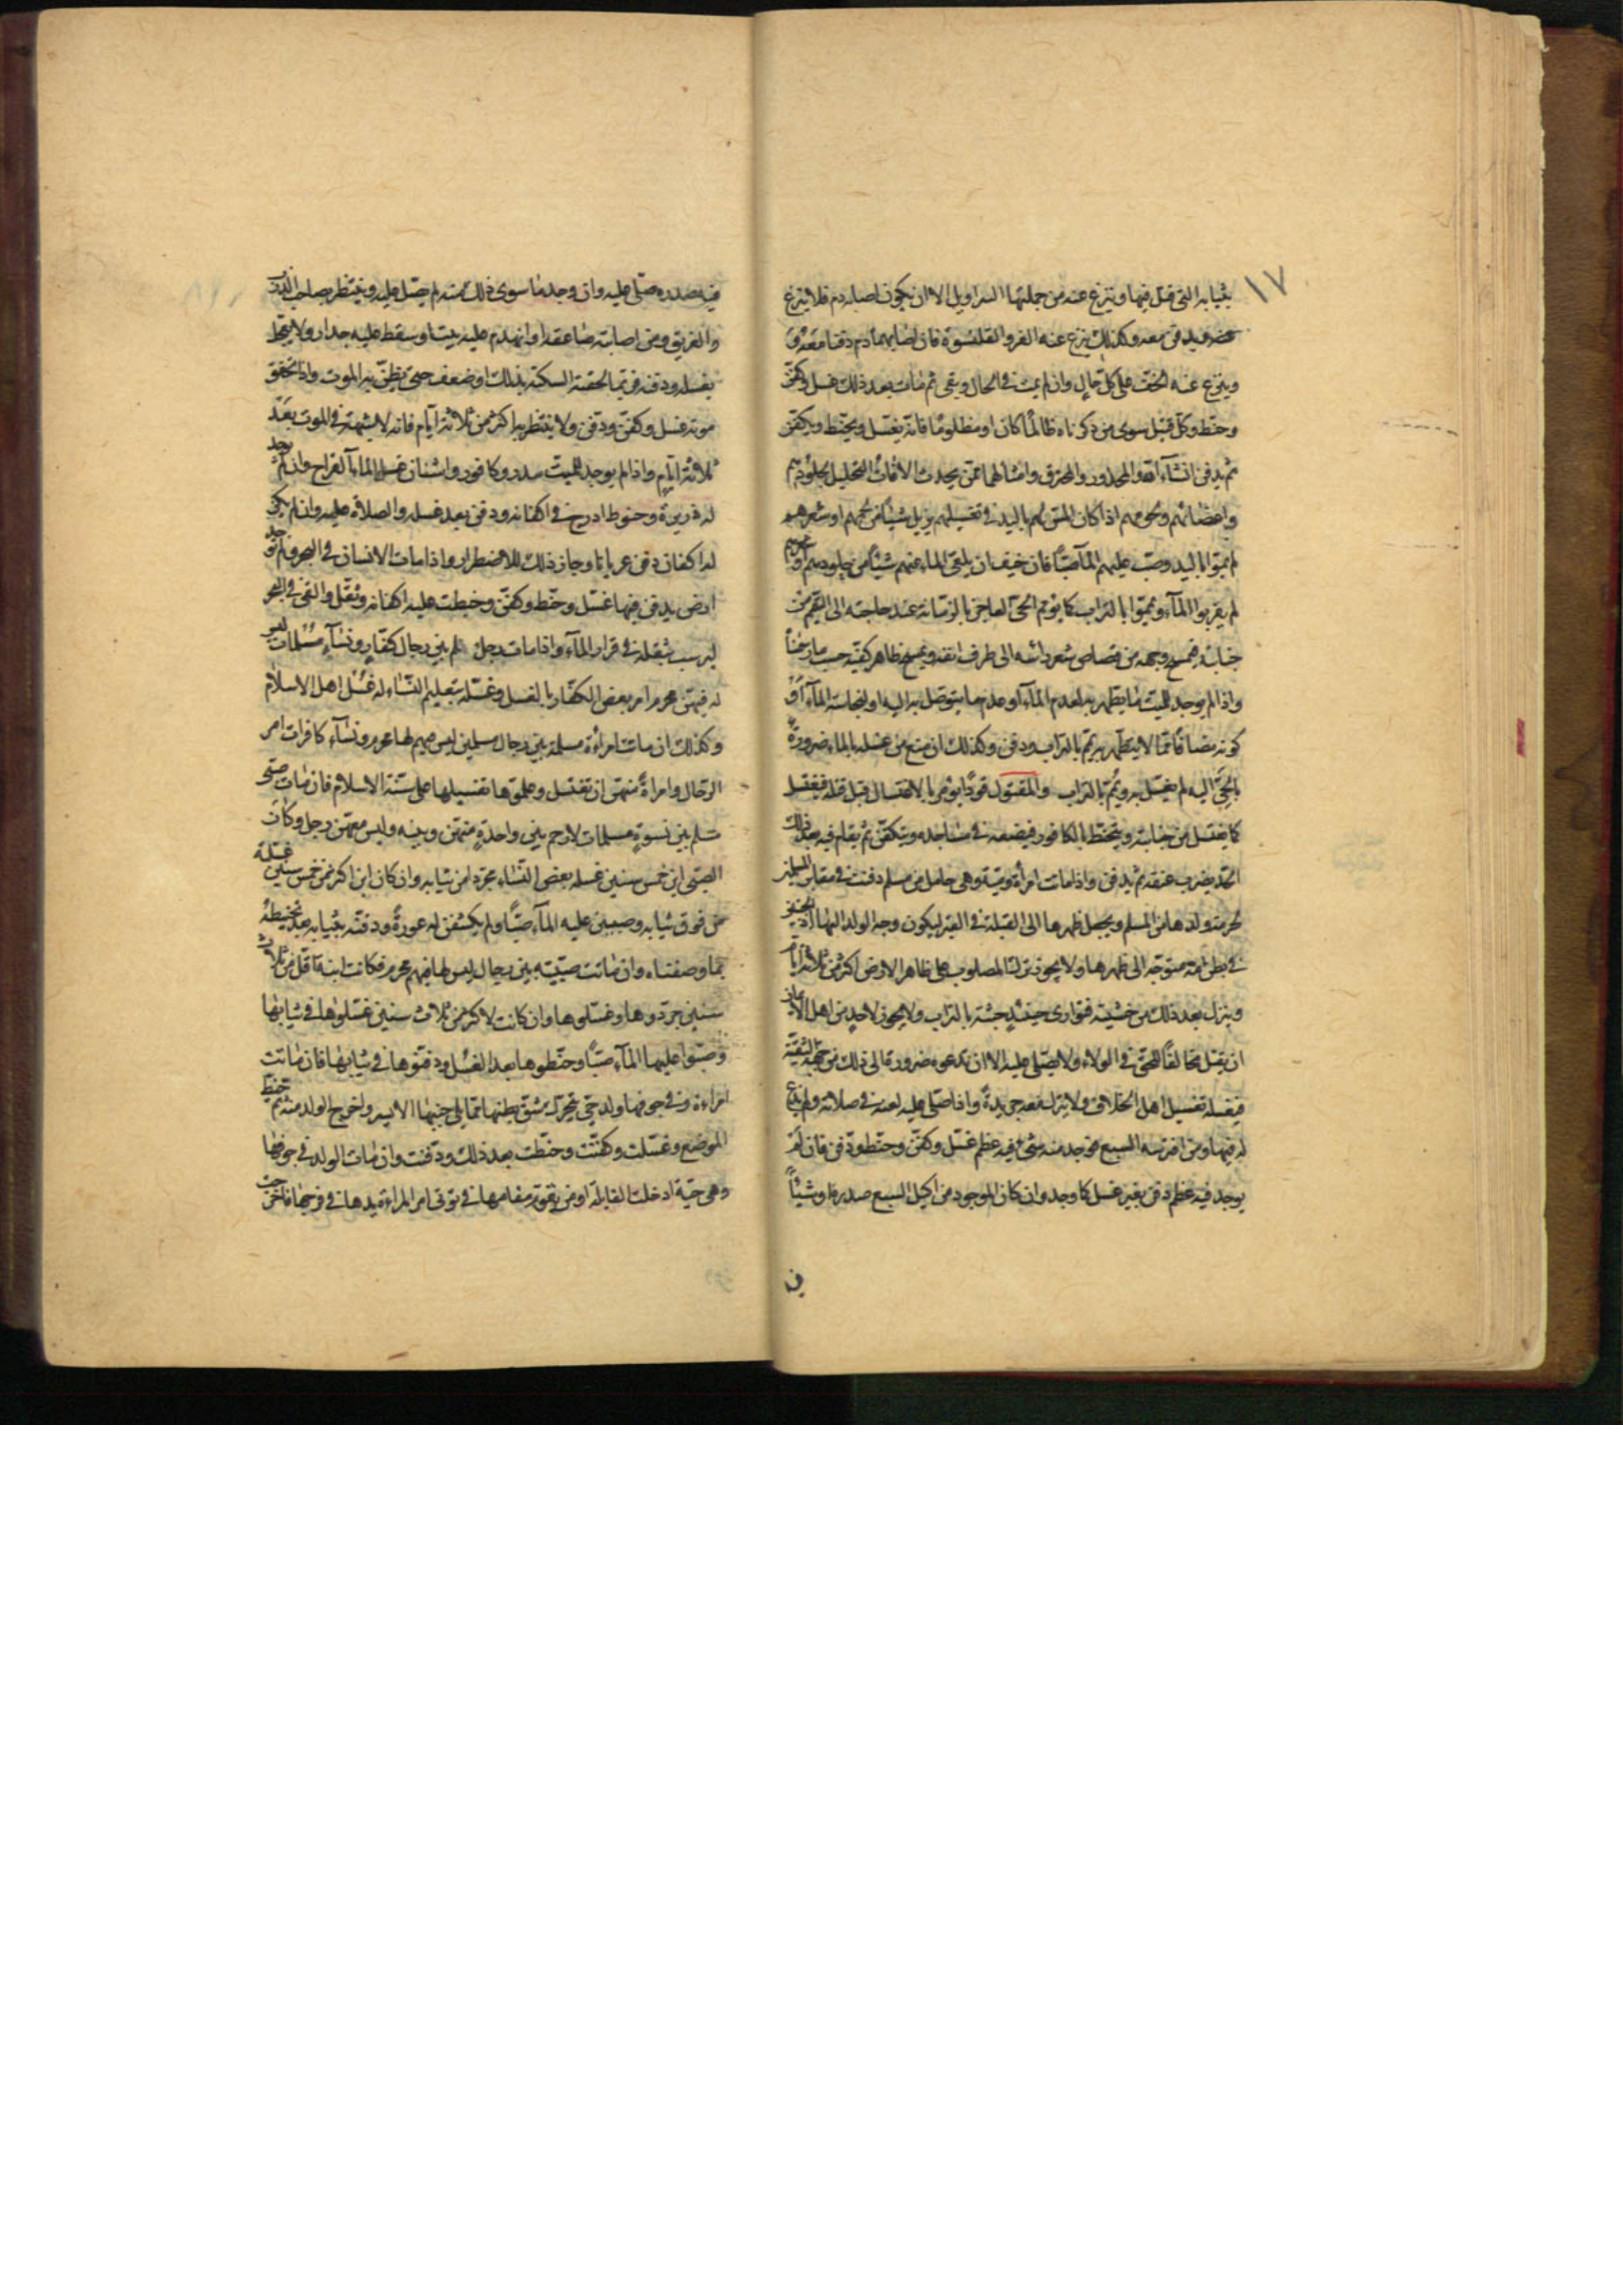 ١٧
بثيابه التي قتل فيها وينزع عنه من جملتها السراويل الا ان يكون اصابه دم فلا ينزع
عنه ويدفن معه وكذلك ينزع عنه الفرو والقلنسوة فان اصابهما دم دفنا معه
وينزع عنه الخف على كل حال وان لم يمت في الحال وبقى ثم مات بعد ذلك غسل وكفن
وحنط وكل قتيل سوى من ذكرناه ظالمًا كان او مظلومًا فانه يغسل ويحنط ويكفن
ثم يدفن انشآء الله والمجدور والمحترق وامثالهما ممن يحدث الآفات التحليل بجلودهم
واعضائهم ولحومهم اذا كان المس لهم باليد في تغسيلهم يزيل شيئًا من لحمهم او شعرهم
لم يمسوا باليد وصب عليهم المآء صبًّا فان خيف ان يلقى الماء عنهم شيئًا من جلودهم او
لم يقربوا المآء ويمموا بالتراب كما يؤمم الحى العاجز بالزمانة عند حاجته الى التيمم من
جنابته فيمسح وجهه من قصاص شعر راسه الى طرف انفه ويمسح ظاهر كفيه حسب ما رسمناه
واذا لم يوجد للميت ما يطهر به لعدم المآء او عدم ما يتوصل به اليه او لنجاسة المآء او
كونه مضافًا مما لا يتطهر به يمم بالتراب ودفن وكذلك ان منع من غسله بالماء ضرورة
يلجئ اليه لم يغسل به ويمم بالتراب والمقتول قودًا يؤمر بالاغتسال قبل قتله فيغتسل
كما يغتسل من جنابته ويتحنط بالكافور فيضعه في مساجده ويتكفن ثم يقام فيه بعد ذلك
الحد بضرب عنقه ثم يدفن واذا ماتت امرأة ذمية وهي حامل من مسلم دفنت في مقابر المسلمين
لحرمة ولدها من المسلم ويجعل ظهرها الى القبلة في القبر ليكون وجه الولد اليها اذ الجنين
في بطن امه متوجه الى ظهرها ولا يجوز ترك المصلوب على ظاهر الارض اكثر من ثلاثة ايام
وينزل بعد ذلك من خشبته فتوارى حينئذٍ جثته بالتراب ولا يجوز لاحدٍ من اهل الايمان
ان يغسل مخالفًا للحق في الولاء ولا يصلى عليه الا ان تدعوه ضرورة الى ذلك من جهة التقية
فيغسله تغسيل اهل الخلاف ولا يترك معه جريدةً واذا صلى عليه لعنه في صلاته ولم يدع
له فيها ومن افترسه السبع فوجد منه شيء فيه عظم غسل وكفن وحنط ودفن فان لم
يوجد فيه عظم دفن بغير غسل كما وجد وان كان الموجود من اكيل السبع صدره او شيئًا
فيه صدره صلى عليه وان وجد ما سوى ذلك منه لم يصل عليه وينتظر بصاحب الذرب
والغريق ومن اصابته صاعقة او انهدم عليه بيت او سقط عليه جدار ولا يعجل
بغسله ودفنه فربما لحقته السكتة بذلك او ضعف حتى يظن به الموت واذا تحقق
موته غسل وكفن ودفن ولا ينتظر به اكثر من ثلاثة ايام فانه لا شبهة في الموت بعد
ثلاثة ايام واذا لم يوجد للميت سدر وكافور واشنان غسل بالمآء القراح وان لم يوجد
له ذريرة وحنوط ادرج في اكفانه ودفن بعد غسله والصلاة عليه وان لم يكن
له اكفان دفن عريانا وجاز ذلك للاضطرار واذا مات الانسان في البحر ولم توجد
ارض يدفن فيها غسل وحنط وكفن وخيطت عليه اكفانه وثقل والقى في البحر
ليرسب بثقله في قرار المآء واذا مات رجل مسلم بين رجال كفارٍ ونسآءٍ مسلمات ليس
له فيهن محرم امر بعض الكفار بالغسل وغسله بتعليم النساء له غسل اهل الاسلام
وكذلك ان ماتت امرأة مسلمة بين رجال مسلمين ليس فيهم لها محرم ونسآء كافرات امر
الرجال امراةً منهن ان تغتسل وعلموها تغسيلها على سنة الاسلام فان مات صبى
مسلم بين نسوةٍ مسلمات لا رحم بين واحدةٍ منهن وبينه وليس معهن رجل وكان
الصبى ابن خمس سنين غسله بعض النساء مجردا من ثيابه وان كان ابن اكثر من خمس سنين غسلنه
من فوق ثيابه وصببن عليه المآء صبًّا ولم يكشفن له عورةً ودفنه بثيابه بعد تحنيطه
بما وصفناه وان ماتت صبية بين رجال ليس لها فيهم محرم فكانت ابنة اقل من ثلاث
سنين جردوها وغسلوها وان كانت لاكثر من ثلاث سنين غسلوها في ثيابها
وصبوا عليها المآء صبًّا وحنطوها بعد الغسل ودفنوها في ثيابها فان ماتت
امراءة وفي جوفها ولد حى يتحرك شق بطنها مما يلى جنبها الايسر واخرج الولد منه ثم تخيط
الموضع وغسلت وكفنت وحنطت بعد ذلك ودفنت وان مات الولد في جوفها
وهي حية ادخلت القابلة او من يقوم مقامها في تولى امر المراءة يدها في فرجها فاخرجت